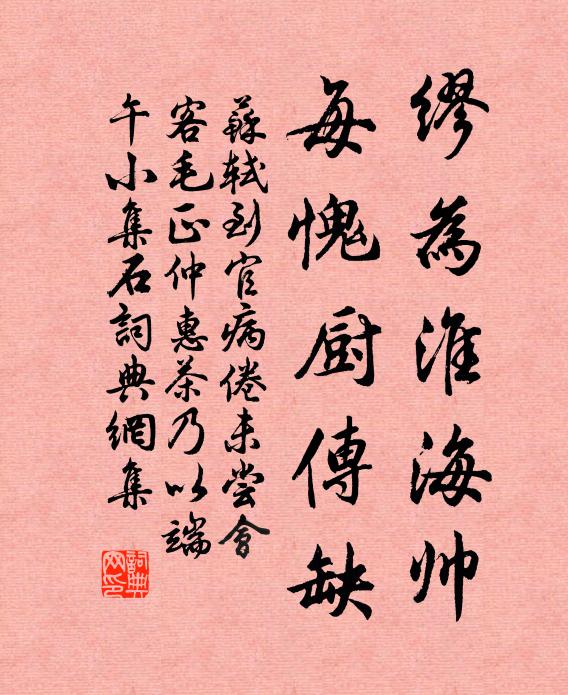 繆為淮海帥
每愧厨傳缺
蘇軾到官病倦未嘗會
客毛正仲惠茶乃以端
午小集石詞典網集
詞典
网印